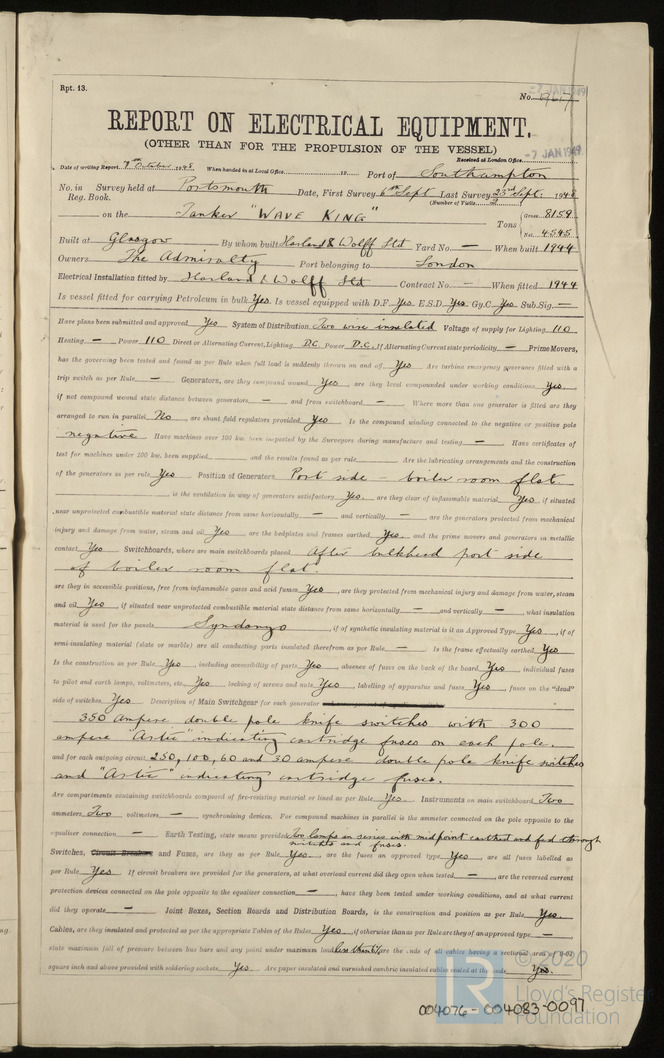 Rpt. 13.
-7 JAN 1949
No.
REPORT ON ELECTRICAL EQUIPMENT.
(OTHER THAN FOR THE PROPULSION OF THE VESSEL)
Received at London Office -7 JAN 1949
Date of writing Report 7th October 1948 When handed in at Local Office 19 Port of Southampton
No. in Survey held at Portsmouth Date, First Survey 6th Sept Last Survey 23rd Sept: 1948
Reg. Book. (Number of Visits 2)
on the Tanker "WAVE KING" Tons { Gross 8159 Net 4545
Built at Glasgow By whom built Harland & Wolff Ltd Yard No. — When built 1944
Owners The Admiralty Port belonging to London
Electrical Installation fitted by Harland & Wolff Ltd Contract No. — When fitted 1944
Is vessel fitted for carrying Petroleum in bulk Yes Is vessel equipped with D.F. Yes E.S.D. Yes Gy.C. Yes Sub.Sig. —
Have plans been submitted and approved Yes System of Distribution Two wire insulated Voltage of supply for Lighting 110
Heating — Power 110 Direct or Alternating Current, Lighting DC Power D.C. If Alternating Current state periodicity — Prime Movers,
has the governing been tested and found as per Rule when full load is suddenly thrown on and off Yes Are turbine emergency governors fitted with a
trip switch as per Rule — Generators, are they compound wound Yes, are they level compounded under working conditions Yes,
if not compound wound state distance between generators — and from switchboard — Where more than one generator is fitted are they
arranged to run in parallel No, are shunt field regulators provided Yes Is the compound winding connected to the negative or positive pole
negative Have machines over 100 kw. been inspected by the Surveyors during manufacture and testing — Have certificates of
test for machines under 100 kw. been supplied and the results found as per rule Are the lubricating arrangements and the construction
of the generators as per rule Yes Position of Generators Port side - boiler room flat
, is the ventilation in way of generators satisfactory Yes, are they clear of inflammable material Yes, if situated
near unprotected combustible material state distance from same horizontally — and vertically —, are the generators protected from mechanical
injury and damage from water, steam and oil Yes, are the bedplates and frames earthed Yes and the prime movers and generators in metallic
contact Yes Switchboards, where are main switchboards placed After bulkhead port side
of boiler room flat.
are they in accessible positions, free from inflammable gases and acid fumes Yes, are they protected from mechanical injury and damage from water, steam
and oil Yes, if situated near unprotected combustible material state distance from same horizontally — and vertically —, what insulation
material is used for the panels Syndanyo, if of synthetic insulating material is it an Approved Type Yes, if of
semi-insulating material (slate or marble) are all conducting parts insulated therefrom as per Rule — Is the frame effectually earthed Yes
Is the construction as per Rule Yes, including accessibility of parts Yes, absence of fuses on the back of the board Yes, individual fuses
to pilot and earth lamps, voltmeters, etc. Yes locking of screws and nuts Yes, labelling of apparatus and fuses Yes, fuses on the "dead"
side of switches Yes Description of Main Switchgear for each generator
350 Ampere double pole knife switches with 300
ampere "Astic" indicating cartridge fuses on each pole.
and for each outgoing circuit 250, 100, 60 and 30 ampere double pole knife switches
and "Astic" indicating cartridge fuses.
Are compartments containing switchboards composed of fire-resisting material or lined as per Rule Yes Instruments on main switchboard Two
ammeters Two voltmeters — synchronising devices. For compound machines in parallel is the ammeter connected on the pole opposite to the
equaliser connection — Earth Testing, state means provided Two lamps in series with midpoint earthed and fed through
switches and fuses.
Switches, Circuit Breakers and Fuses, are they as per Rule Yes, are the fuses an approved type Yes, are all fuses labelled as
per Rule Yes If circuit breakers are provided for the generators, at what overload current did they open when tested —, are the reversed current
protection devices connected on the pole opposite to the equaliser connection —, have they been tested under working conditions, and at what current
did they operate — Joint Boxes, Section Boards and Distribution Boards, is the construction and position as per Rule Yes
Cables, are they insulated and protected as per the appropriate Tables of the Rules Yes, if otherwise than as per Rule are they of an approved type —
state maximum fall of pressure between bus bars and any point under maximum load are the ends of all cables having a sectional area of 0.02
square inch and above provided with soldering sockets Yes Are paper insulated and varnished cambric insulated cables sealed at the ends Yes.
© 2020
LR
Lloyd's Register
Foundation
004076-004083-0097